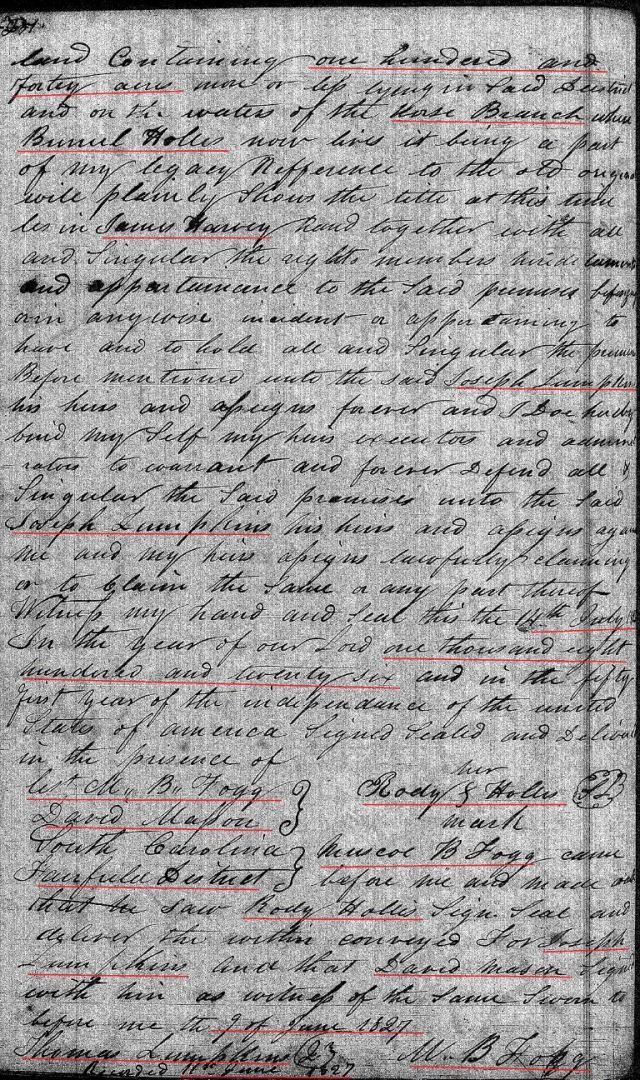 land Containing one hundred and
forty acres more or less lying in Said District
and on the waters of the Horse Branch where
Burrel Holles now lives it being a part
of my legacy Refference to the old original
will plainly Shows the title at this time
les in James Harvey hand together with all
and Singular the rights members
and appertainance to the Said premises belonging
orin anywise incident or appertaining to
have and to hold all and Singular the premises
Before mentioned unto the said Joseph Lumpkins
his heirs and assigns forever and I Doe hereby
bind my Self my heirs executors and adminis
rators to warrant and forever Defend all &
Singular the Said premises unto the Said
Joseph Lumpkins his heirs and assigns against
me and my heirs assigns lawfully claiming
or to Claim the Same or any part thereof
Witness my hand and Seal this the 14th July
In the year of our Lord one thousand eight
hundred and twenty six and in the fifty
first year of the independance of the united
States of america Signed Sealed and Deliver
in the presence of
M. B. Fogg
David Mason
her
Rody Holles
mark
South Carolina
Fairfield District
Muscoe B Fogg came
before me and made oath
that he saw Rody Holles Sign Seal and
deliver the within conveyed For Joseph
Lumpkins and that David Mason Sign
with him as witness of the Same Sworn to
before me the 9 of June 1827
Lumpkins
M. B Fogg
Recorded 1827